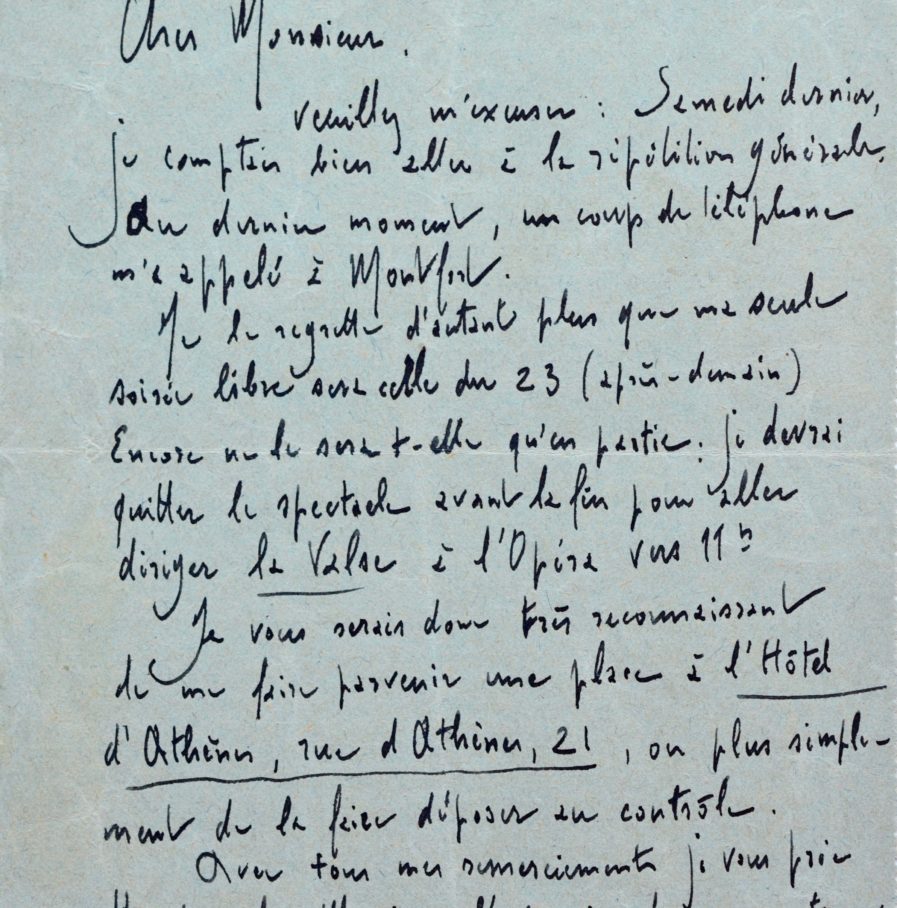 Cher Monsieur,
veuillez m'excuser : Samedi dernier,
je comptais bien aller à la répétition générale.
Au dernier moment, un coup de téléphone
m'a appelé à Montfort.
Je le regrette d'autant plus que ma seule
soirée libre sera celle du 23 (après-demain)
Encore ne le sera t-elle qu'en partie : je devrai
quitter le spectacle avant la fin pour aller
diriger la Valse à l'Opéra vers 11h
Je vous serais donc très reconnaissant
de me faire parvenir une place à l'Hôtel
d'Athènes, rue d'Athènes, 21, ou plus simple-
ment de la faire déposer au contrôle.
Avec tous mes remerciements je vous prie